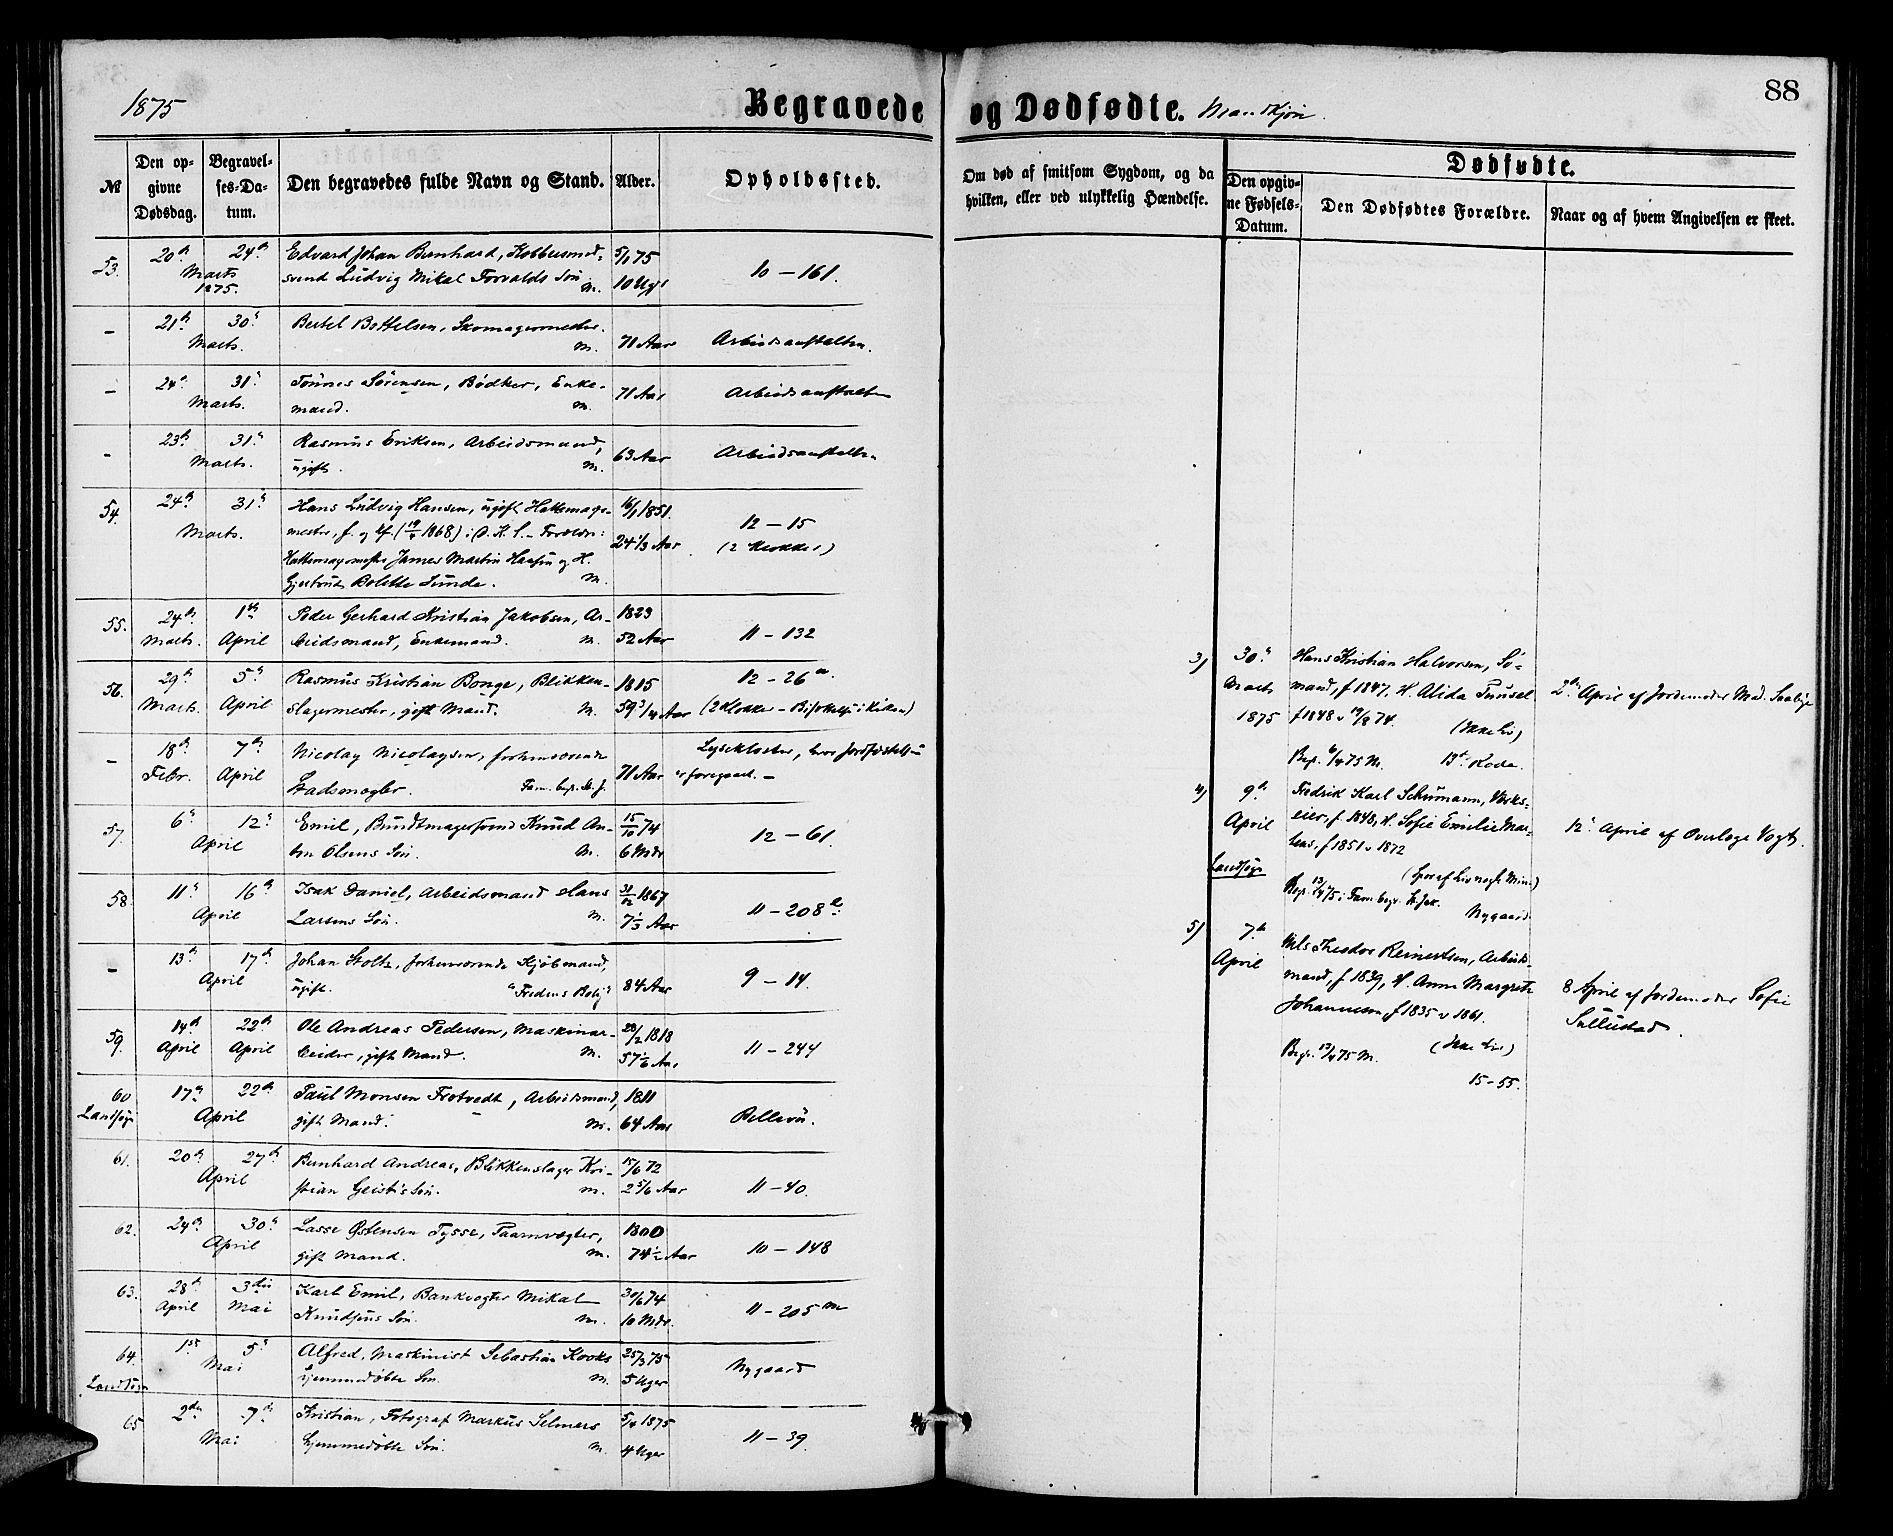 1875
Begravede og Dødfødte. Mandkjøn.
88
№
Den opgivne Dødsdag.
Begravelses-Datum.
Den begravedes fulde Navn og Stand.
Alder.
Opholdssted.
Om død af smitsom Sygdom, og da hvilken, eller ved ulykkelig Hændelse.
Dødfødte.
Den opgivne Fødsels-Datum.
Den Dødfødtes Forældre.
Naar og af hvem Angivelsen er skeet.
53. 20de 24de Edvard Johan Bernhard, Kobbersmed- 5/1 75
Marts 1875. svend Ludvig Mikal Torvalds Søn M. 10 Ug. 10 – 161.
– 21de 30te Bertel Bottelsen, Skomagermester.
Marts. M. 71 Aar Arbeidsanstalten.
– 24de 31te Tønnes Sørensen, Bødker, Enke-
Marts. mand. M. 71 Aar Arbeidsanstalten
– 23de 31te Rasmus Eriksen, Arbeidsmand,
Marts. ugift. M. 63 Aar Arbeidsanstalten
54. 24de 31te Hans Ludvig Hansen, ugift Hattemager- 1851.
Marts. mester, f. og 1868) i D. K. S. – Forældre: 24 1/3 Aar 12 – 15
Hattemagermester James Martin Hansen og H. (2 Klokker)
Gjertrud Bolette Sunde. M.
55. 24de 1ste Peder Gerhard Kristian Jakobsen, Ar- 1823
Marts. April beidsmand, Enkemand. M. 52 Aar 11 – 132
56. 29de 5te Rasmus Kristian Bonge, Blikken- 1815 12 – 26 a.
Marts. April slagermester, gift Mand. M. 59 3/4 Aar (2 Klokker – i Kirken)
– 18de 7de Nicolay Nicolaysen, forhenværende Lysekloster, hvor Jordfæstelsen
Febr. April Stadsmægler. Fam. begr. St. J. 71 Aar er foregaaet. –
57. 6te 12te Emil, Bundtmagersvend Knud An- 15/10 74
April ton Olsens Søn. M. 6 Mdr 12 – 61.
58. 11te 16de Isak Daniel, Arbeidsmand Hans 31/12 1867
April Larsens Søn. M. 7 1/3 Aar 11 – 208 b.
– 13de 17de Johan Stoltz, forhenværende Kjøbmand,
April ugift. "Fredens Bolig" 84 Aar 9 – 14.
59. 14de 22de Ole Andreas Pedersen, Maskinar- 28/2 1818
April April beider, gift Mand. M. 57 1/6 Aar 11 – 244
60 17de 22de Paul Monsen Trotvedt, Arbeidsmand, 1811
Landsogn April gift Mand. M. 64 Aar Bellevü.
61. 20de 27de Bernhard Andreas, Blikkenslager Kri- 15/6 72
April stian Geist's Søn. M. 2 5/6 Aar 11 – 40.
62. 24de 30te Lasse Østensen Tysse, Taarnvægter, 1800
April gift Mand. M. 74 1/2 Aar 10 – 148
63. 28de 3die Karl Emil, Bankvogter Mikal 30/6 74
April Mai Knudsens Søn. M. 10 Mdr. 11 – 205 m
64. 1ste 5te Alfred, Maskinist Sebastian Kooks 25/3 75
Landsogn Mai hjemmedøbte Søn. M. 5 Uger Nygaard
65 2den 7de Kristian, Fotograf Markus Selmers 5/4 1875
Mai hjemmedøbte Søn. M. 4 Uger 11 – 39.
3) 30te Hans Kristian Halvorsen, Sø-
Marts mand, f 1847, H. Alida Puusel 2den April af Jordemoder Mad.
1875 f 1848 v 74. (Ikke Liv)
Begr. 6/4 75 M. 13de Rode.
4) 9de Fredrik Karl Schumann, Verks-
April eier, f 1848, H. Sofie Emilie Mar- 12te April af Overlæge Vogt.
tens, f 1851 v 1872
Landsogn (Spor af Liv nogle Min.)
Begr. 13/4 75 i Fam. begr. St. Jak. Nygaard
5) 7de Nils Theodor Reinertsen, Arbeids-
April mand, f 1839, H. Anne Margrete 8 April af Jordemoder Sofie
Johannesen, f 1835 v 1861.
Begr. 13/4 75 M. (Ikke Liv)
15 – 55.